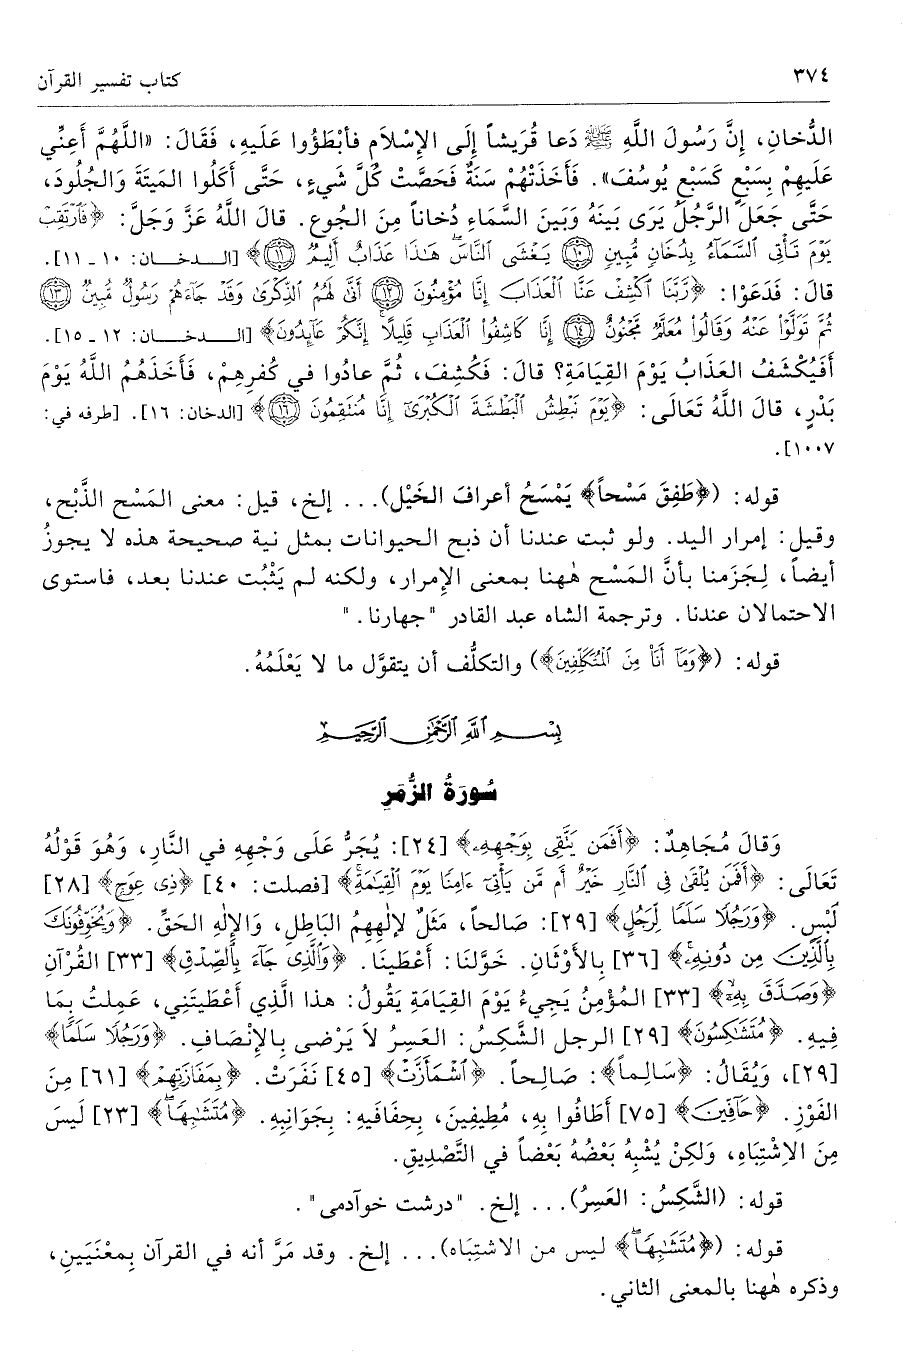 ٣٧٤ كتاب تفسير القرآن
الدُّخانِ، إِنَّ رَسُولَ اللَّهِ ﷺ دَعا قُرَيشاً إِلَى الإِسْلَامِ فأَبْطَؤُوا عَلَيهِ، فَقَالَ: «اللَّهُمَّ أَعِنِّي
عَلَيهِمْ بِسَبْعٍ كَسَبْعِ يُوسُفَ». فَأَخَذَتْهُمْ سَنَةٌ فَحَصَّتْ كُلَّ شَيءٍ، حَتَّى أَكَلُوا المَيتَةَ وَالجُلُودَ،
حَتَّى جَعَلَ الرَّجُلُ يَرَى بَينَهُ وَبَينَ السَّمَاءِ دُخاناً مِنَ الجُوعِ. قالَ اللَّهُ عَزَّ وَجَلَّ: ﴿فَٱرْتَقِبْ
يَوْمَ تَأْتِى ٱلسَّمَآءُ بِدُخَانٍ مُّبِينٍ ۝١٠ يَغْشَى ٱلنَّاسَ ۖ هَٰذَا عَذَابٌ أَلِيمٌ ۝١١﴾ [الـدخـان: ١٠ ـ ١١].
قالَ: فَدَعَوْا: ﴿رَّبَّنَا ٱكْشِفْ عَنَّا ٱلْعَذَابَ إِنَّا مُؤْمِنُونَ ۝١٢ أَنَّىٰ لَهُمُ ٱلذِّكْرَىٰ وَقَدْ جَآءَهُمْ رَسُولٌ مُّبِينٌ ۝١٣
ثُمَّ تَوَلَّوْا۟ عَنْهُ وَقَالُوا۟ مُعَلَّمٌ مَّجْنُونٌ ۝١٤ إِنَّا كَاشِفُوا۟ ٱلْعَذَابِ قَلِيلًا ۚ إِنَّكُمْ عَآئِدُونَ﴾ [الـدخـان: ١٢ ـ ١٥].
أَفَيُكْشَفُ العَذَابُ يَوْمَ القِيَامَةِ؟ قالَ: فَكُشِفَ، ثُمَّ عادُوا في كُفرِهِمْ، فَأَخَذَهُمُ اللَّهُ يَوْمَ
بَدْرٍ، قالَ اللَّهُ تَعَالَى: ﴿يَوْمَ نَبْطِشُ ٱلْبَطْشَةَ ٱلْكُبْرَىٰٓ إِنَّا مُنتَقِمُونَ ۝١٦﴾ [الدخان: ١٦]. [طرفه في:
١٠٠٧].
قوله: (﴿طَفِقَ مَسْحاً﴾ يَمْسَحُ أعرافَ الخَيْل)... إلخ، قيل: معنى المَسْحِ الذَّبْح،
وقيل: إمرار اليد. ولو ثبت عندنا أن ذبح الحيوانات بمثل نية صحيحة هذه لا يجوزُ
أيضاً، لِجَزَمنا بأنَّ المَسْح هٰهنا بمعنى الإمرار، ولكنه لم يَثْبُت عندنا بعد، فاستوى
الاحتمالان عندنا. وترجمة الشاه عبد القادر "جهارنا."
قوله: (﴿وَمَآ أَنَا۠ مِنَ ٱلْمُتَكَلِّفِينَ﴾) والتكلُّف أن يتقوَّل ما لا يَعْلَمُهُ.
بِسْمِ ٱللَّهِ ٱلرَّحْمَٰنِ ٱلرَّحِيمِ
سُورَةُ الزُّمَرِ
وَقالَ مُجَاهِدٌ: ﴿أَفَمَن يَتَّقِى بِوَجْهِهِۦ﴾ [٢٤]: يُجَرُّ عَلَى وَجْهِهِ في النَّارِ، وَهُوَ قَوْلُهُ
تَعَالَى: ﴿أَفَمَن يُلْقَىٰ فِى ٱلنَّارِ خَيْرٌ أَم مَّن يَأْتِىٓ ءَامِنًا يَوْمَ ٱلْقِيَٰمَةِ ۚ﴾ [فصلت: ٤٠] ﴿ذِى عِوَجٍ﴾ [٢٨]
لَبْسٍ. ﴿وَرَجُلًا سَلَمًا لِّرَجُلٍ﴾ [٢٩]: صَالحاً، مَثَلٌ لإِلٰهِهِمُ البَاطِلِ، وَالإِلٰهِ الحَقِّ. ﴿وَيُخَوِّفُونَكَ
بِٱلَّذِينَ مِن دُونِهِۦ ۚ﴾ [٣٦] بِالأَوْثَانِ. خَوَّلنَا: أَعْطَينَا. ﴿وَٱلَّذِى جَآءَ بِٱلصِّدْقِ﴾ [٣٣] القُرْآنِ
﴿وَصَدَّقَ بِهِۦٓ ۙ﴾ [٣٣] المُؤْمِنُ يَجِيءُ يَوْمَ القِيَامَةِ يَقُولُ: هذا الَّذِي أَعْطَيتَنِي، عَمِلتُ بِمَا
فِيهِ. ﴿مُتَشَٰكِسُونَ﴾ [٢٩] الرجل الشَّكِسُ: العَسِرُ لاَ يَرْضى بِالإِنْصَافِ. ﴿وَرَجُلًا سَلَمًا﴾
[٢٩]، وَيُقَالُ: ﴿سَالِماً﴾: صَالِحاً. ﴿ٱشْمَأَزَّتْ﴾ [٤٥] نَفَرَتْ. ﴿بِمَفَازَتِهِمْ﴾ [٦١] مِنَ
الفَوْزِ. ﴿حَآفِّينَ﴾ [٧٥] أَطَافُوا بِهِ، مُطِيفِينَ، بِحِفَافَيهِ: بِجَوَانِبِهِ. ﴿مُّتَشَٰبِهًا ۖ﴾ [٢٣] لَيسَ
مِنَ الاِشْتِبَاهِ، وَلكِنْ يُشْبِهُ بَعْضُهُ بَعْضاً في التَّصْدِيقِ.
قوله: (الشَّكِسُ: العَسِرُ)... إلخ. "درشت خوآدمى".
قوله: (﴿مُّتَشَٰبِهًا ۖ﴾ ليس من الاشتِبَاه)... إلخ. وقد مَرَّ أنه في القرآن بِمعْنَيَينِ،
وذكره هٰهنا بالمعنى الثاني.